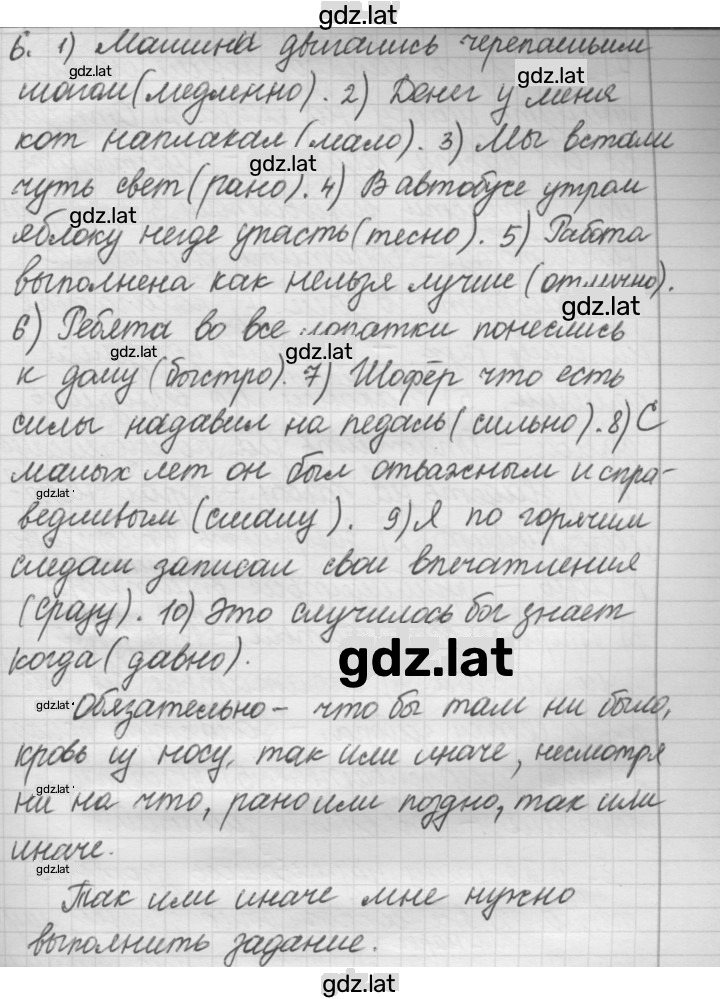 gdz.lat
6. 1) Машины двигались черепашьим
gdz.lat
gdz.lat
шагом (медленно). 2) Денег у меня
кот наплакал (мало). 3) Мы встали
gdz.lat
чуть свет (рано). 4) В автобусе утром
gdz.lat
яблоку негде упасть (тесно). 5) Работа
выполнена как нельзя лучше (отлично).
gdz.lat
6) Ребята во все лопатки понеслись
gdz.lat
gdz.lat
к дому (быстро). 7) Шофёр что есть
силы надавил на педаль (сильно). 8) С
малых лет он был отважным и спра-
gdz.lat
ведливым (смалу). 9) Я по горячим
следам записал свои впечатления
(сразу). 10) Это случилось бог знает
когда (давно).
gdz.lat
gdz.lat
Обязательно - что бы там ни было,
кровь из носу, так или иначе, несмотря
gdz.lat
ни на что, рано или поздно, так или
иначе.
gdz.lat
Так или иначе мне нужно
выполнить задание.
gdz.lat